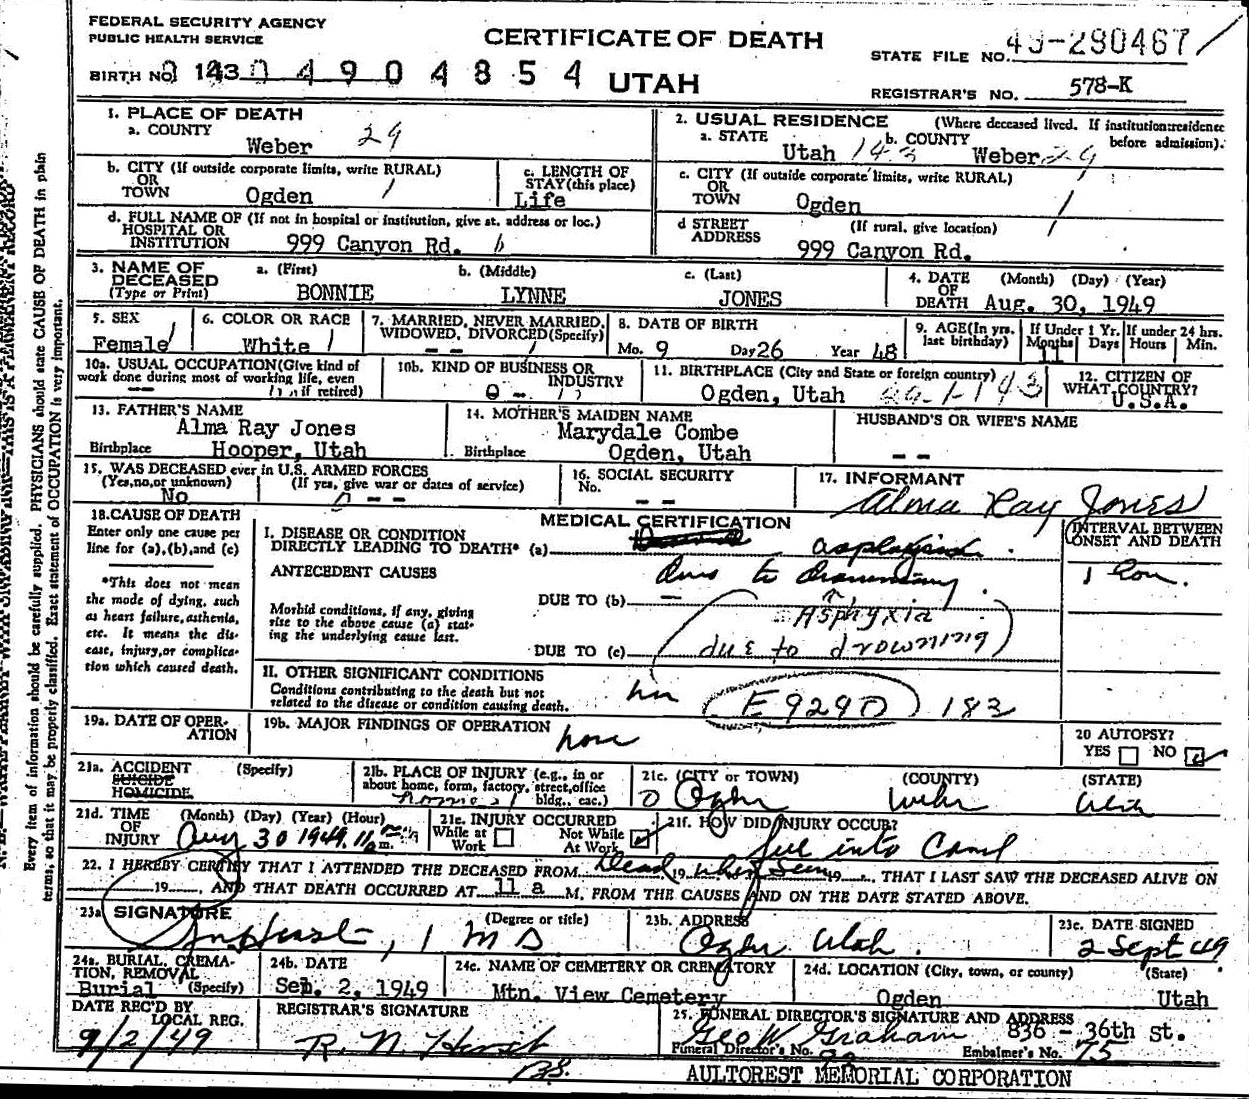 FEDERAL SECURITY AGENCY
PUBLIC HEALTH SERVICE
CERTIFICATE OF DEATH
STATE FILE NO. 49-290467
BIRTH NO. 143 0 4 9 0 4 8 5 4 UTAH
REGISTRAR'S NO. 578-K
Every item of information should be carefully supplied. PHYSICIANS should state CAUSE OF DEATH in plain
terms, so that it may be properly classified. Exact statement of OCCUPATION is very important.
1. PLACE OF DEATH
a. COUNTY
Weber 29
2. USUAL RESIDENCE (Where deceased lived. If institution:residence
before admission).
a. STATE b. COUNTY
Utah 143 Weber 29
b. CITY (If outside corporate limits, write RURAL)
OR
TOWN Ogden 1
c. LENGTH OF
STAY(this place)
Life
c. CITY (If outside corporate limits, write RURAL)
OR
TOWN Ogden 1
d. FULL NAME OF (If not in hospital or institution, give st. address or loc.)
HOSPITAL OR
INSTITUTION 999 Canyon Rd.
d STREET (If rural, give location)
ADDRESS 999 Canyon Rd.
3. NAME OF
DECEASED
(Type or Print)
a. (First) b. (Middle) c. (Last)
BONNIE LYNNE JONES
4. DATE (Month) (Day) (Year)
OF
DEATH Aug. 30, 1949
5. SEX
Female 1
6. COLOR OR RACE
White 1
7. MARRIED, NEVER MARRIED,
WIDOWED, DIVORCED(Specify)
-- 1
8. DATE OF BIRTH
Mo. 9 Day 26 Year 48
9. AGE(In yrs.
last birthday)
If Under 1 Yr.
Months Days
11
If under 24 hrs.
Hours Min.
10a. USUAL OCCUPATION(Give kind of
work done during most of working life, even
if retired)
--
10b. KIND OF BUSINESS OR
INDUSTRY
11. BIRTHPLACE (City and State or foreign country)
Ogden, Utah 29-1-143
12. CITIZEN OF
WHAT COUNTRY?
U.S.A.
13. FATHER'S NAME
Alma Ray Jones
Birthplace Hooper, Utah
14. MOTHER'S MAIDEN NAME
Marydale Combe
Birthplace Ogden, Utah
HUSBAND'S OR WIFE'S NAME
--
15. WAS DECEASED ever in U.S. ARMED FORCES
(Yes,no,or unknown) (If yes, give war or dates of service)
No --
16. SOCIAL SECURITY
No.
--
17. INFORMANT
Alma Ray Jones
18. CAUSE OF DEATH
Enter only one cause per
line for (a),(b),and (c)
*This does not mean
the mode of dying, such
as heart failure, asthenia,
etc. It means the dis-
ease, injury,or complica-
tion which caused death.
MEDICAL CERTIFICATION
INTERVAL BETWEEN
ONSET AND DEATH
I. DISEASE OR CONDITION
DIRECTLY LEADING TO DEATH* (a)
ANTECEDENT CAUSES
due to drowning
1 hou.
DUE TO (b) —
Asphyxia
Morbid conditions, if any, giving
rise to the above cause (a) stat-
ing the underlying cause last.
DUE TO (c)
due to drowning
II. OTHER SIGNIFICANT CONDITIONS
Conditions contributing to the death but not
related to the disease or condition causing death.
E929D 183
19a. DATE OF OPER-
ATION
19b. MAJOR FINDINGS OF OPERATION
none
20 AUTOPSY?
YES NO
21a. ACCIDENT (Specify)
SUICIDE
HOMICIDE
21b. PLACE OF INJURY (e.g., in or
about home, form, factory, street,office
bldg., eac.)
21c. (CITY or TOWN) (COUNTY) (STATE)
0 Ogden Weber Utah
21d. TIME (Month) (Day) (Year) (Hour)
OF
INJURY Aug 30 1949 11 m.
21e. INJURY OCCURRED
While at
Work
Not While
At Work
21f. HOW DID INJURY OCCUR?
fell into Canal
22. I HEREBY CERTIFY THAT I ATTENDED THE DECEASED FROM Dead 19 when seen 19, THAT I LAST SAW THE DECEASED ALIVE ON
19, AND THAT DEATH OCCURRED AT 11 a M. FROM THE CAUSES AND ON THE DATE STATED ABOVE.
23a SIGNATURE (Degree or title)
M D
23b. ADDRESS
Ogden Utah.
23c. DATE SIGNED
2 Sept 49
24a. BURIAL, CREMA-
TION, REMOVAL
Burial (Specify)
24b. DATE
Sep. 2, 1949
24c. NAME OF CEMETERY OR CREMATORY
Mtn. View Cemetery
24d. LOCATION (City, town, or county) (State)
Ogden Utah
DATE REC'D BY
LOCAL REG.
9/2/49
REGISTRAR'S SIGNATURE
25. FUNERAL DIRECTOR'S SIGNATURE AND ADDRESS
Geo W. Graham 836 - 36th st.
Funeral Director's No. Embalmer's No. 75
AULTOREST MEMORIAL CORPORATION